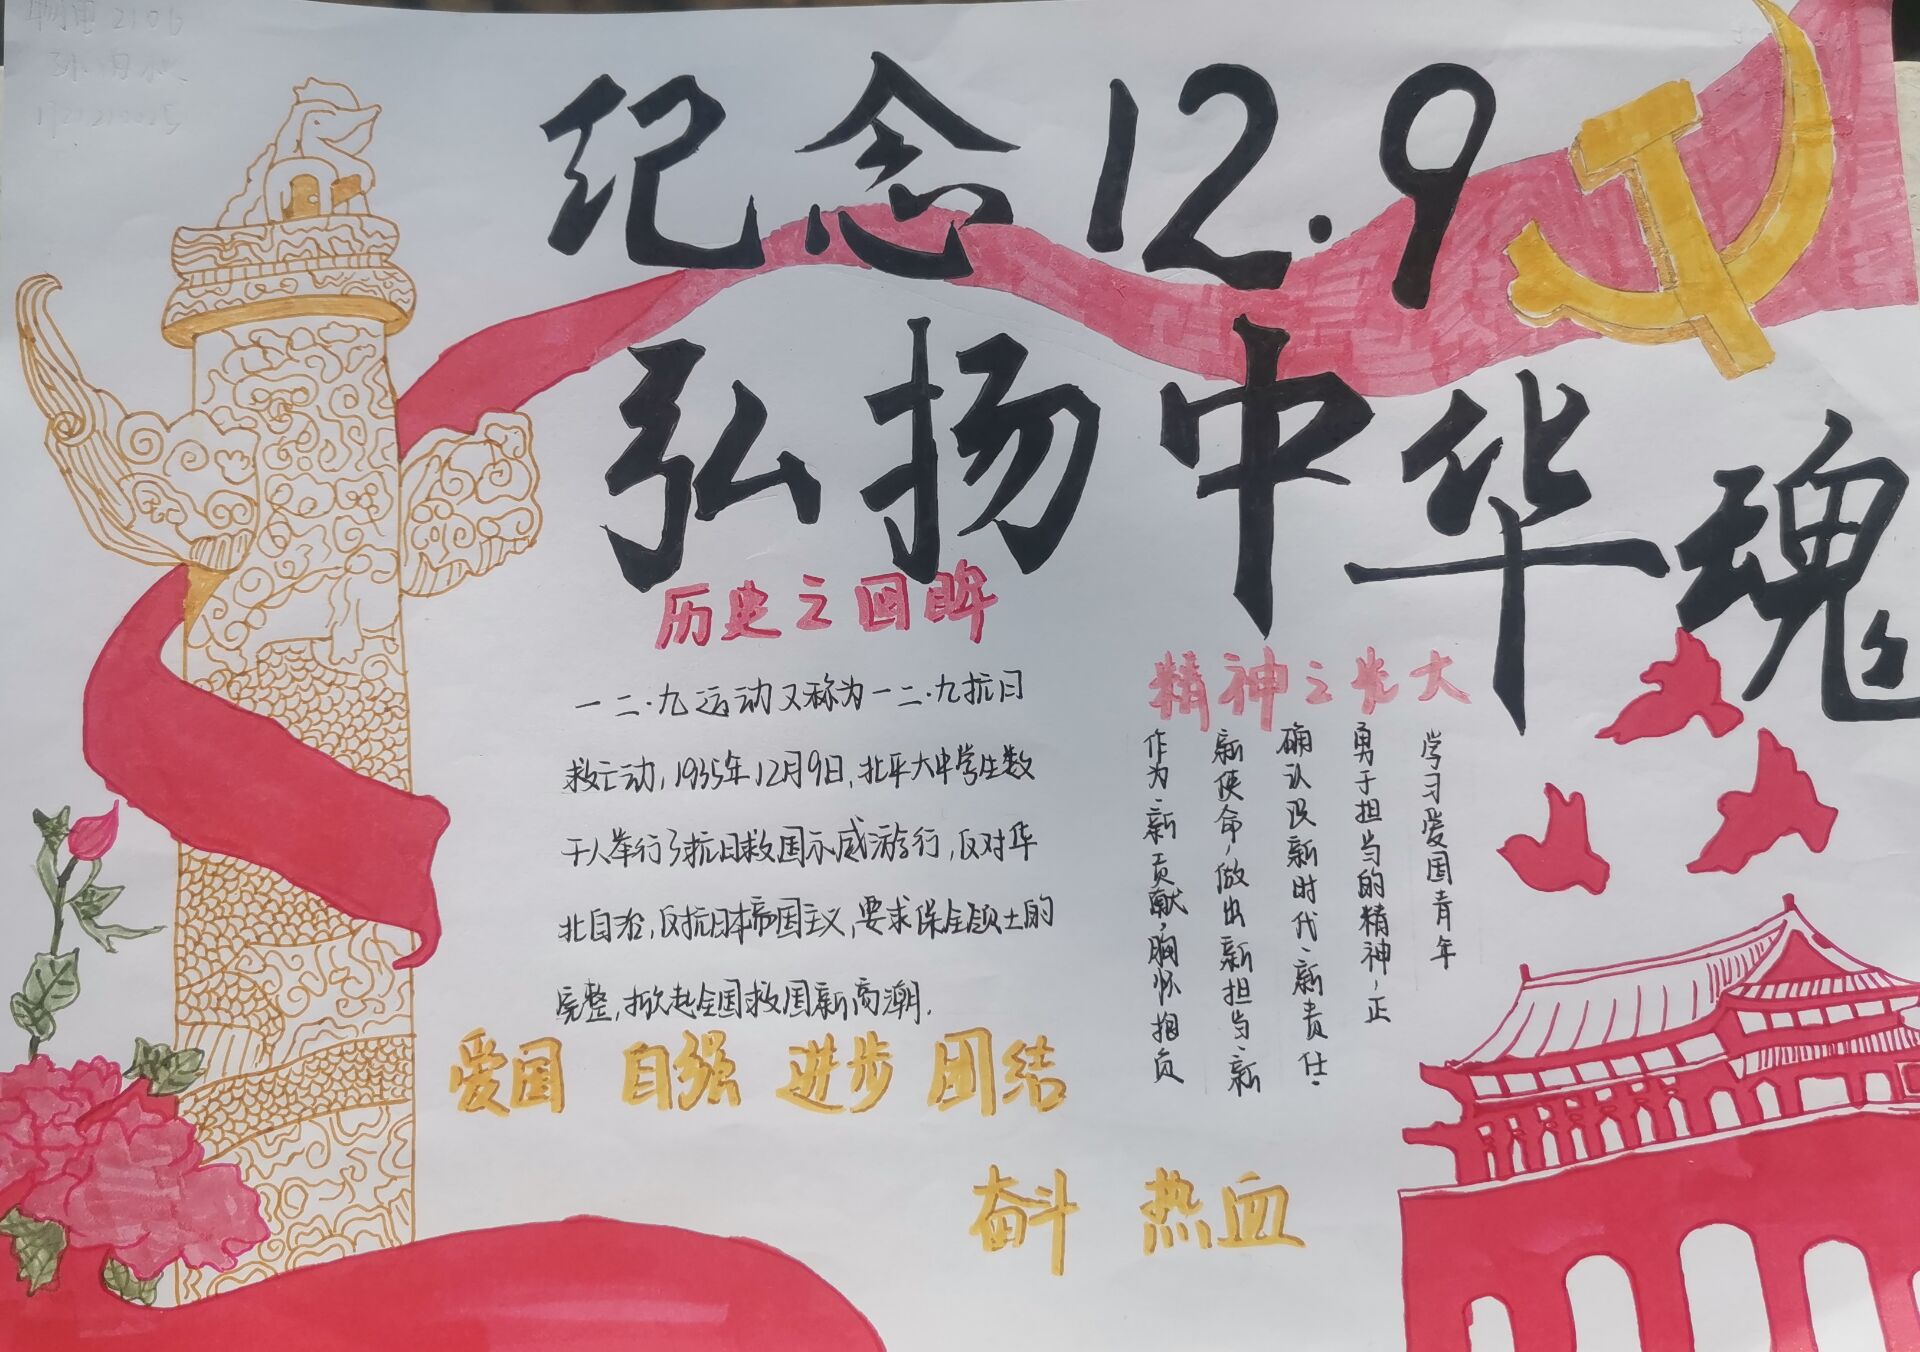 纪念12.9
弘扬中华魂
历史之回眸
一二·九运动又称为一二·九抗日
救亡动,1935年12月9日,北平大中学生数
千人举行了抗日救国示威游行,反对华
北自治,反抗日本帝国主义,要求保全领土的
完整,掀起全国救国新高潮.
精神之光大
学习爱国青年
勇于担当的精神,正
确认识新时代、新责任、
新使命,做出新担当、新
作为、新贡献,胸怀抱负
爱国 自强 进步 团结
奋斗 热血